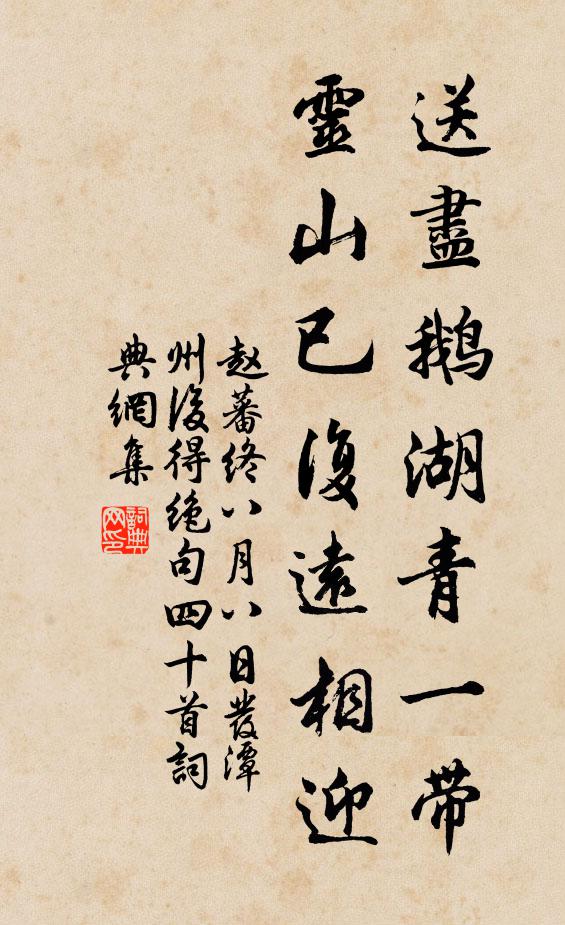 送盡鵝湖青一帶
靈山已復遠相迎
赵蕃终八月八日發潭
州後得绝句四十首詞
典網集
詞典
网印